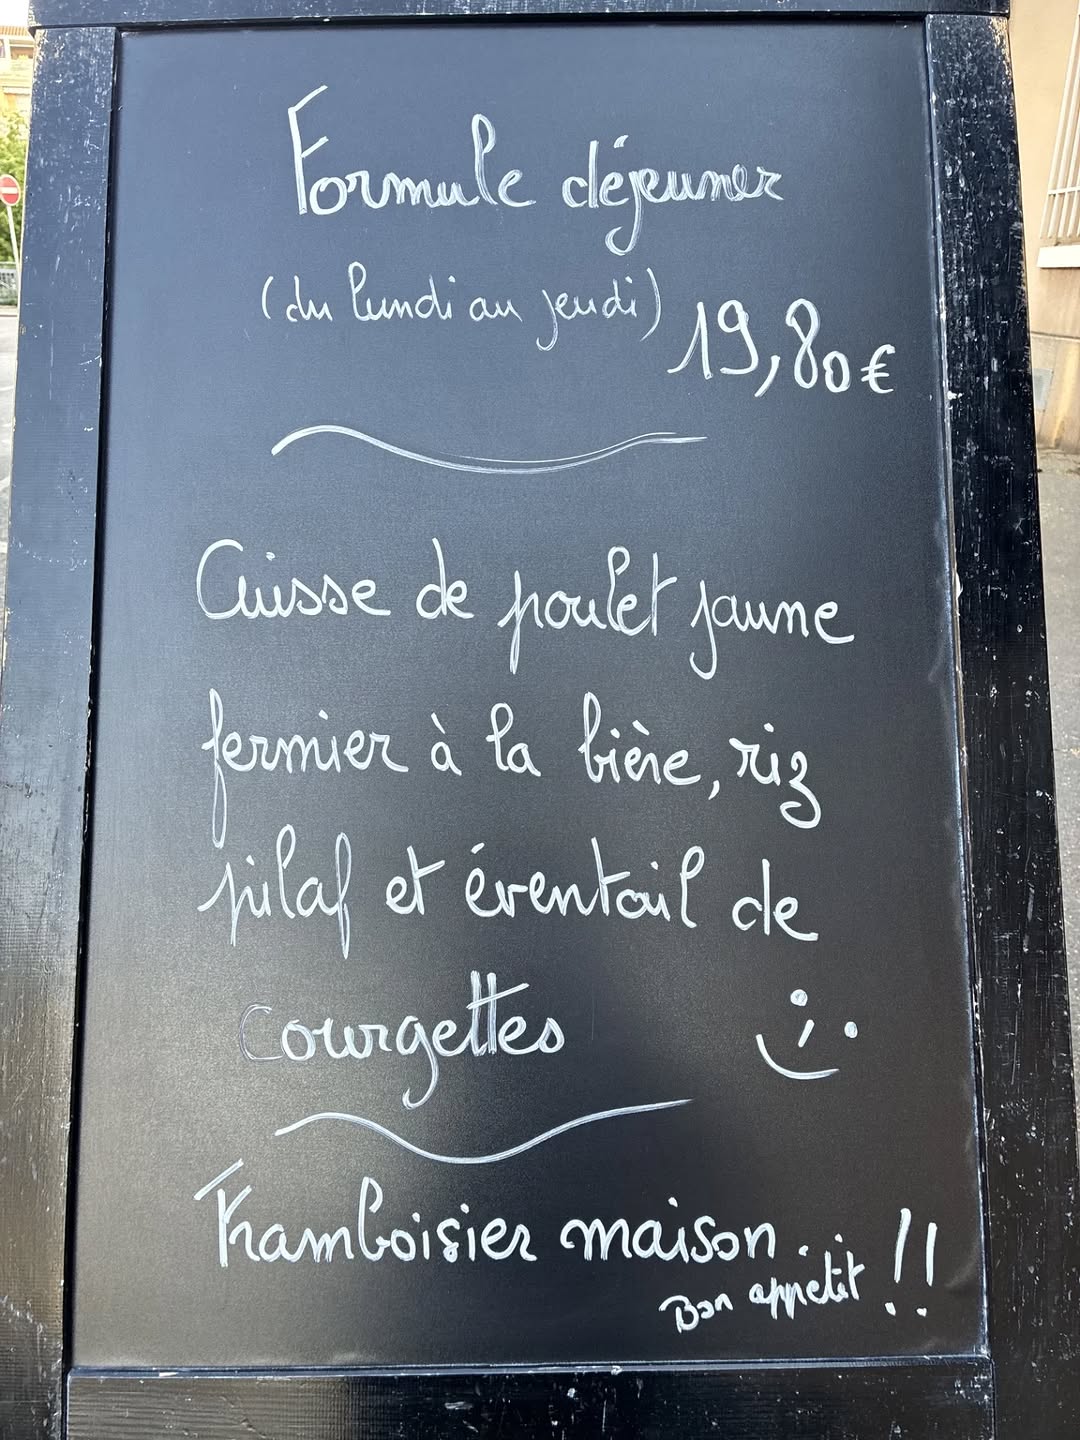 Formule déjeuner
(du lundi au jeudi) 19,80€
Cuisse de poulet jaune
fermier à la bière, riz
pilaf et éventail de
courgettes
Framboisier maison...
Bon appétit !!